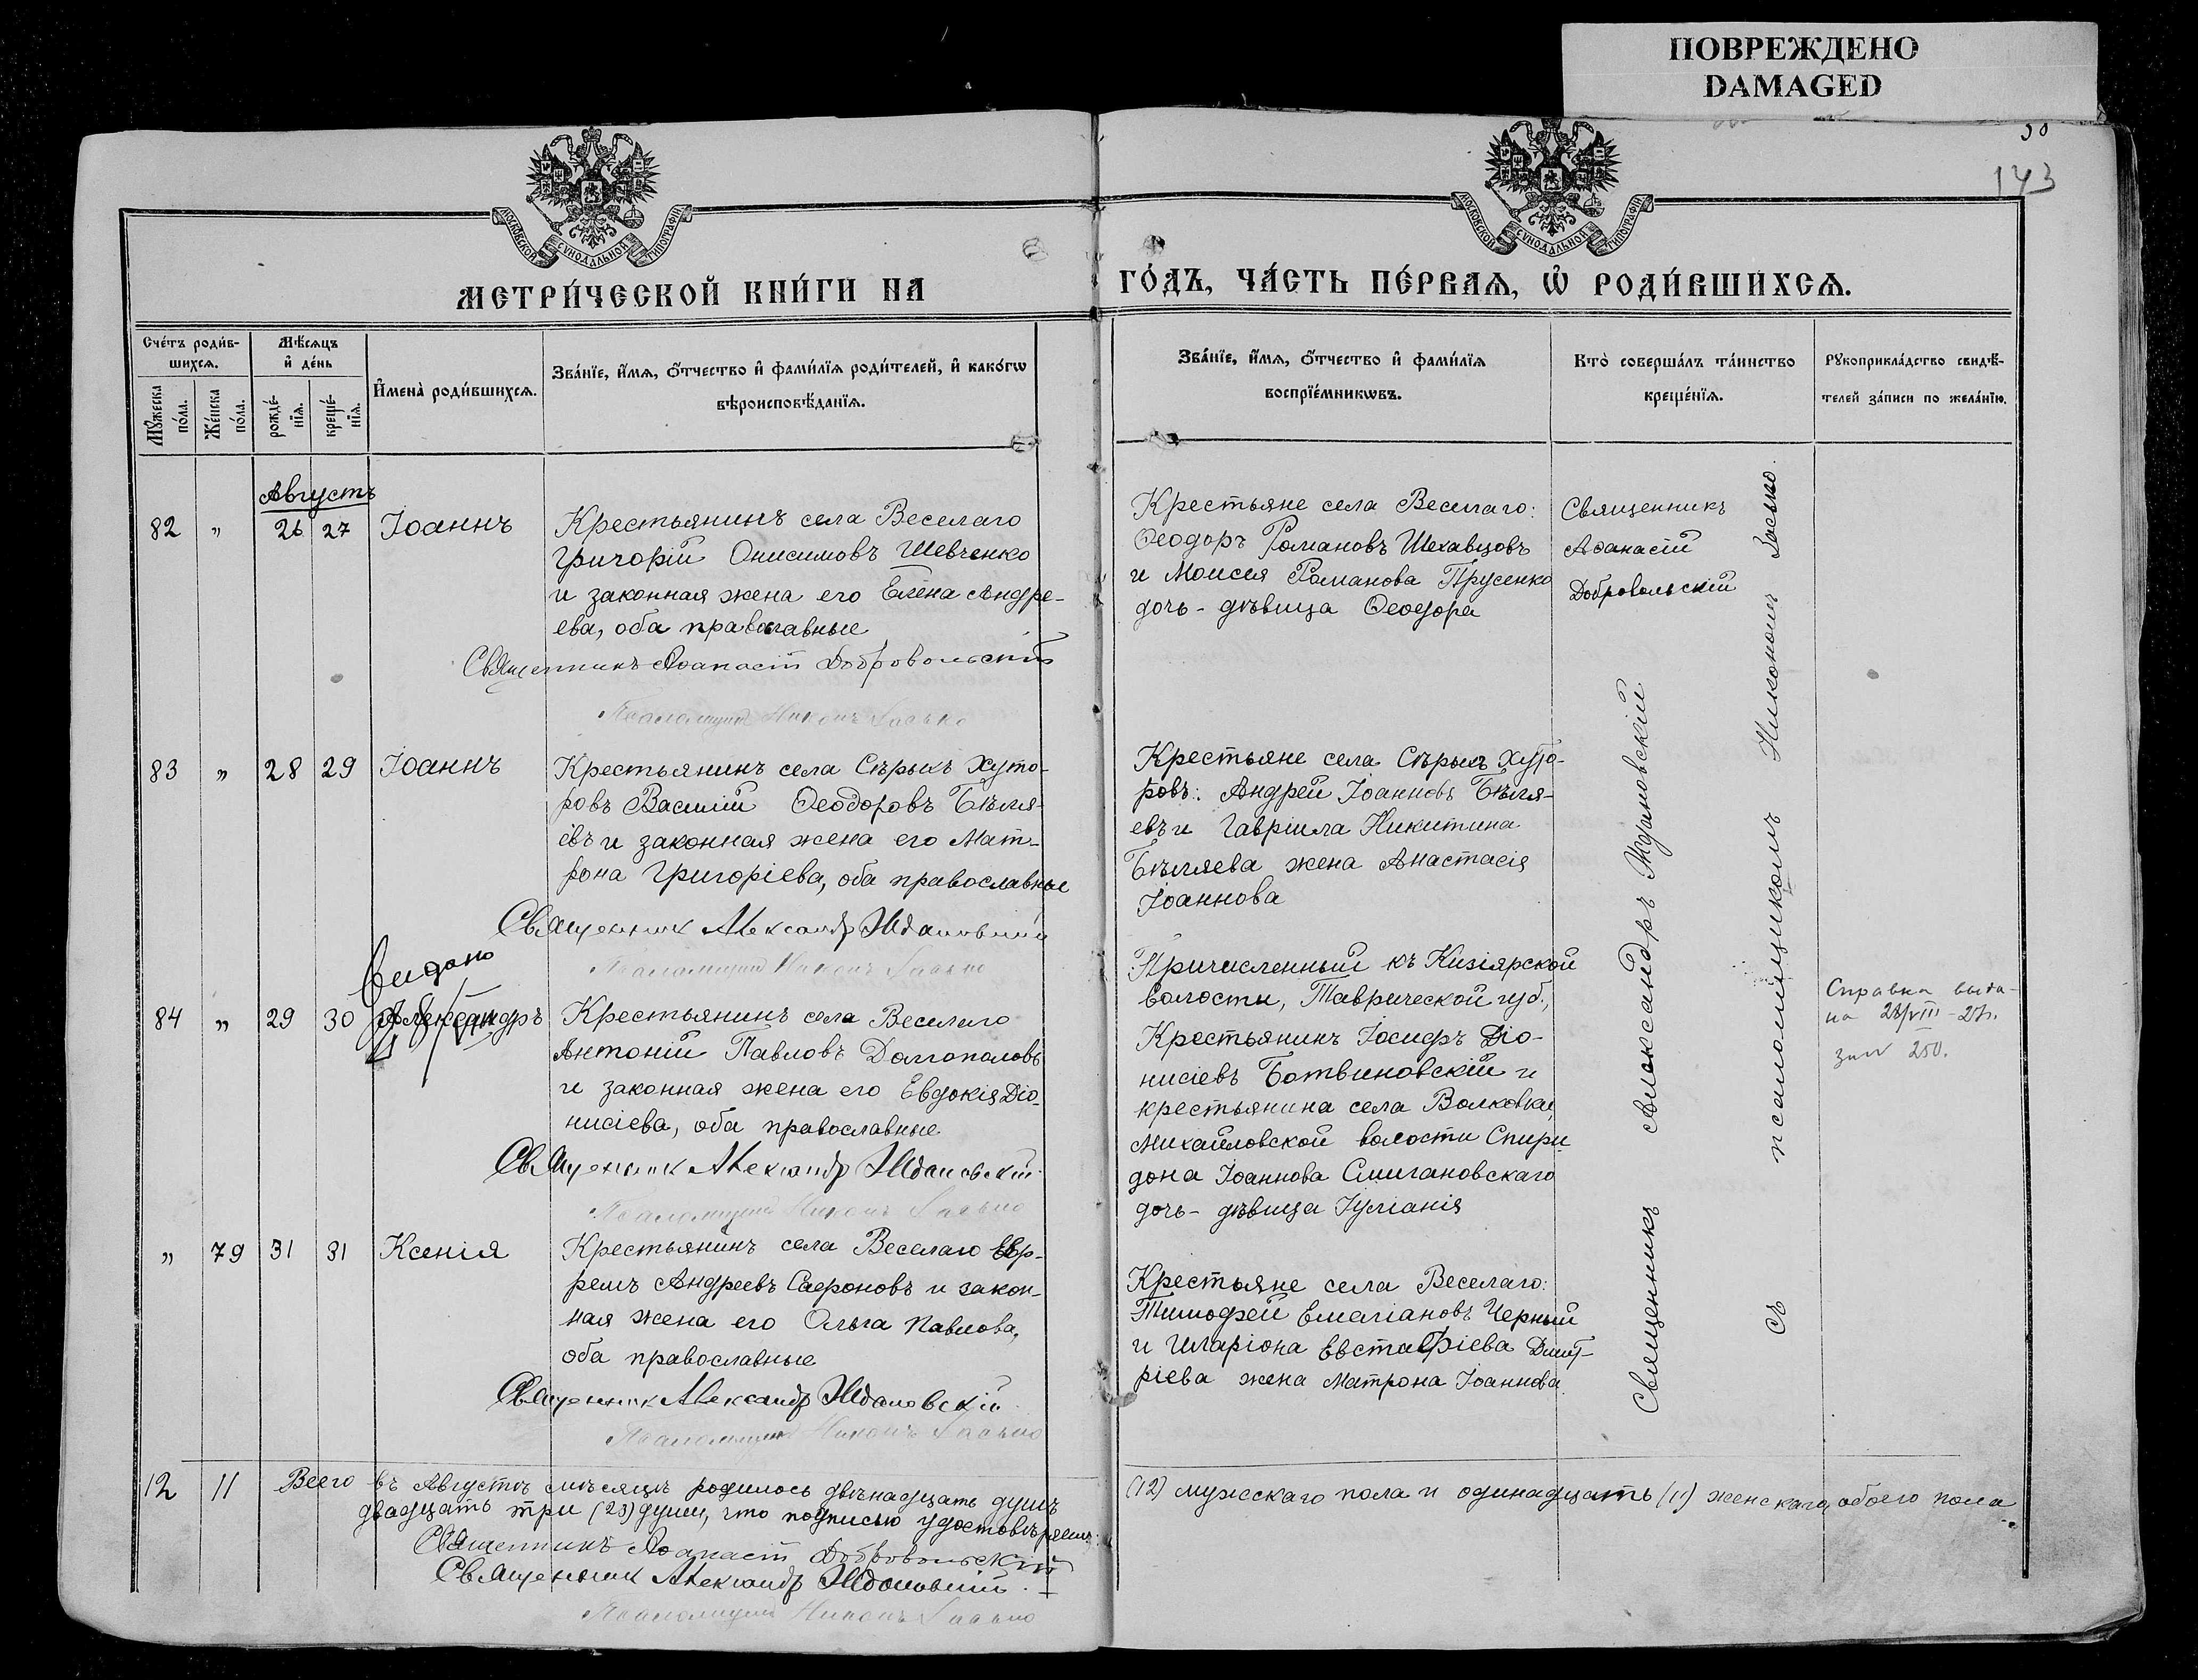 ПОВРЕЖДЕНО
DAMAGED
30
143
МОСКОВСКОЙ СѴНОДАЛЬНОЙ ТИПОГРАФІИ
МОСКОВСКОЙ СѴНОДАЛЬНОЙ ТИПОГРАФІИ
МЕТРИ́ЧЕСКОЙ КНИ́ГИ НА
ГО́ДЪ, ЧА́СТЬ ПЕ́РВАѦ, Ѡ҆ РОДИ́ВШИХСѦ.
Сче́тъ роди́в-
шихсѧ.
Мꙋ́жеска по́ла.
Же́нска по́ла.
Мѣ́сѧцъ
и҆ де́нь
рожде́-
нїѧ.
креще́-
нїѧ.
И҆мена̀ роди́вшихсѧ.
Зва́нїе, и҆́мѧ, ѻ҆́тчество и҆ фами́лїѧ роди́телей, и҆ како́гѡ
вѣроисповѣ́данїѧ.
Зва́нїе, и҆́мѧ, ѻ҆́тчество и҆ фами́лїѧ
воспрїе́мникѡвъ.
Кто̀ соверша́лъ та́инство
креще́нїѧ.
Рꙋкоприкла́дство свидѣ́-
телей за́писи по жела́нїю.
Августъ
82 „ 26 27 Іоаннъ
Крестьянинъ села Веселаго
Григорій Онисимовъ Шевченко
и законная жена его Елена Андре-
ева, оба православные
Священникъ Аѳанасій Добровольскій
Псаломщикъ Никонъ Засько
Крестьяне села Веселаго:
Ѳеодоръ Романовъ Шехавцовъ
и Моисея Романова Прусенко
дочь - дѣвица Ѳеодора
Священникъ
Аѳанасій
Добровольскій
83 „ 28 29 Іоаннъ
Крестьянинъ села Сѣрыхъ Хуто-
ровъ Василій Ѳеодоровъ Бѣля-
евъ и законная жена его Мат-
рона Григоріева, оба православные
Священник Александр Ждановский
Псаломщикъ Никонъ Засько
Крестьяне села Сѣрыхъ Хуто-
ровъ: Андрей Іоанновъ Бѣля-
евъ и Гавріила Никитина
Бѣляева жена Анастасія
Іоаннова
видано
84 „ 29 30 Александръ
Крестьянинъ села Веселаго
Антоній Павловъ Долгополовъ
и законная жена его Евдокія Діо-
нисіева, оба православные
Священник Александр Ждановскій
Псаломщикъ Никонъ Засько
Причисленный къ Кизіярской
волости, Таврической губ.,
Крестьянинъ Іосифъ Діо-
нисіевъ Ботвиновскій и
крестьянина села Волковки,
Михайловской волости Спири-
дона Іоаннова Смигановскаго
дочь - дѣвица Іуліанія
Справка выда-
на 28/VIII - 27г.
за № 250.
„ 79 31 31 Ксенія
Крестьянинъ села Веселаго Еф-
ремъ Андреевъ Сафоновъ и закон-
ная жена его Ольга Павлова,
оба православные
Священник Александр Ждановскій
Псаломщикъ Никонъ Засько
Крестьяне села Веселаго:
Тимофей Емеліановъ Черный
и Иларіона Евстафіева Дмит-
ріева жена Матрона Іоаннова
Священникъ Александръ Ждановскій
съ псаломщикомъ Никономъ Засько.
12 11 Всего въ Августѣ мѣсяцѣ родилось двѣнадцать душъ
(12) мужескаго пола и одинадцать (11) женскаго, обоего пола
двадцать три (23) души, что подписью удостовѣряемъ:
Священникъ Аѳанасій Добровольскій
Священник Александр Ждановскій
Псаломщикъ Никонъ Засько